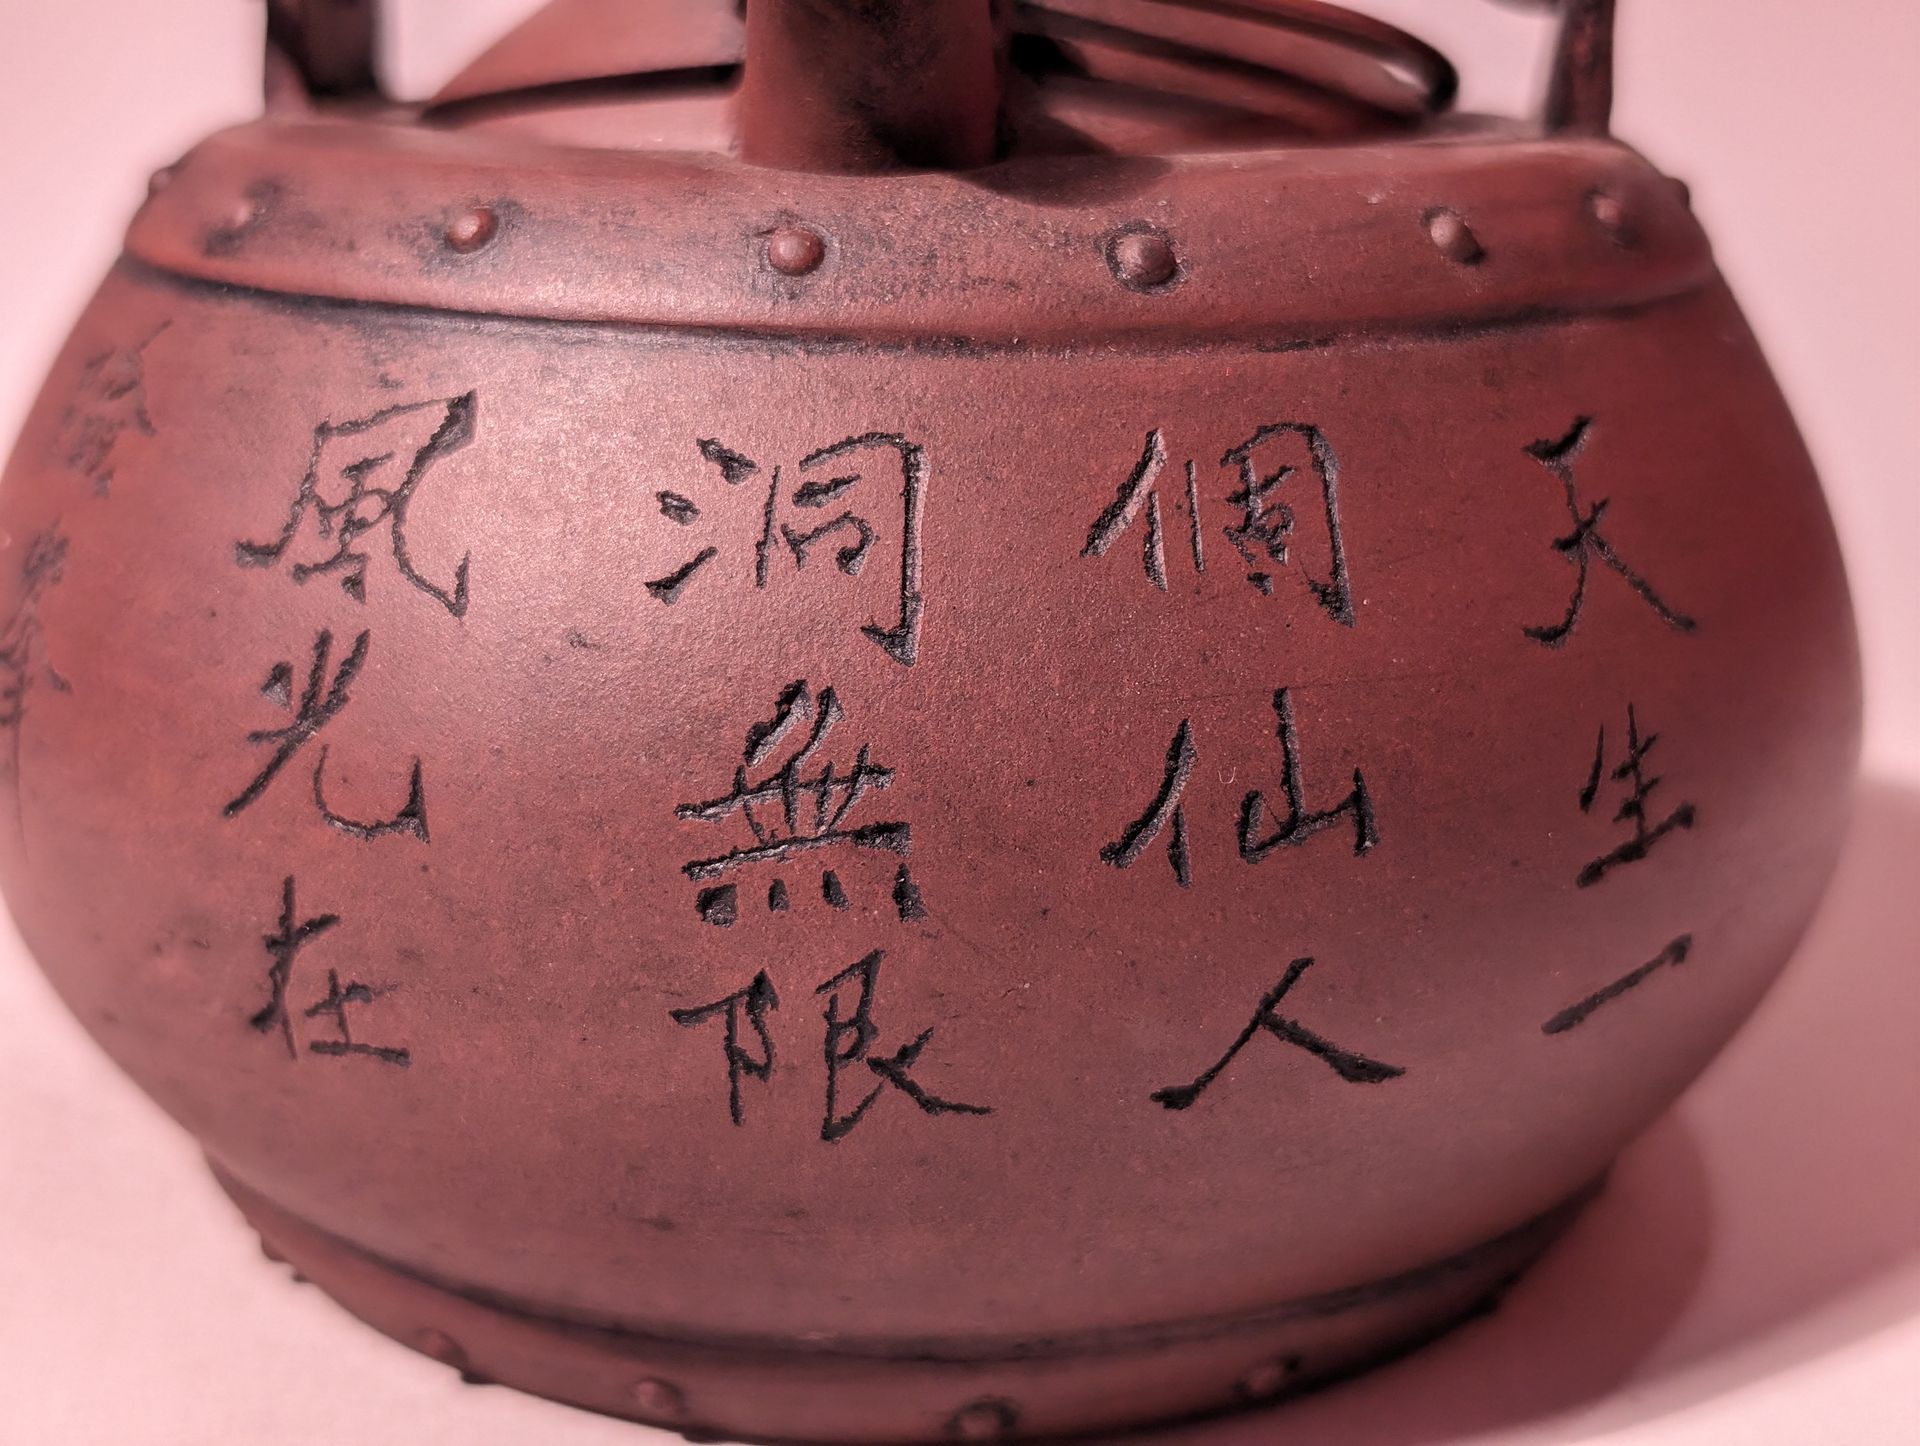 天生一
個仙人
洞無限
風光在